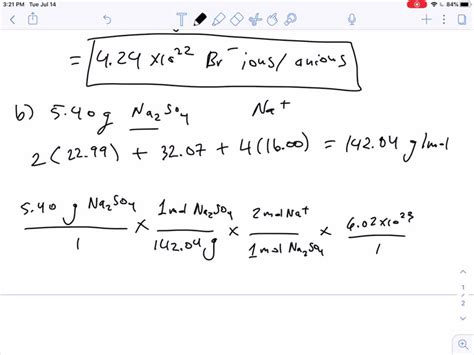 3:21 PM Tue Jul 14
84%
= 4.24 x10^22 Br^- ions/anions
b) 5.40g Na2SO4 Na^+
2(22.99) + 32.07 + 4(16.00) = 142.04 g/mol
5.40 g Na2SO4 / 1 x 1 mol Na2SO4 / 142.04 g x 2 mol Na^+ / 1 mol Na2SO4 x 6.02 x10^23 / 1
1
2